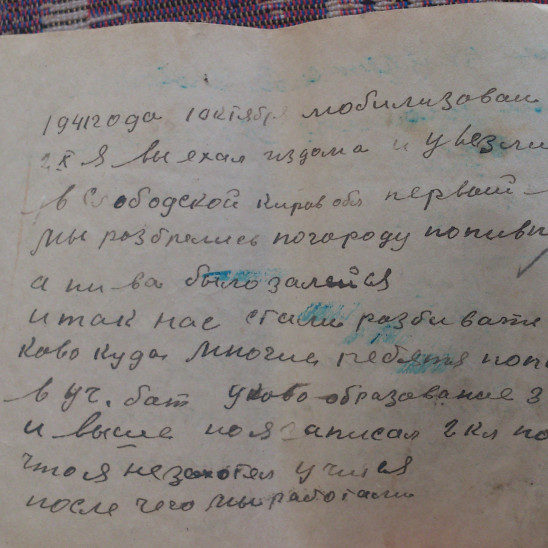 1941 года 1 октября мобилизован
2х я выехал из дома и увезли
в Слободской Киров обл первай
мы розбрелись погороду попивп
а пива было залейся
итак нас стали розбивать
ково куда многие ребята поп
в уч. бат уково образование 3
и выше но я записал 2 кл по
что я незахотел учится
после чего мы работали